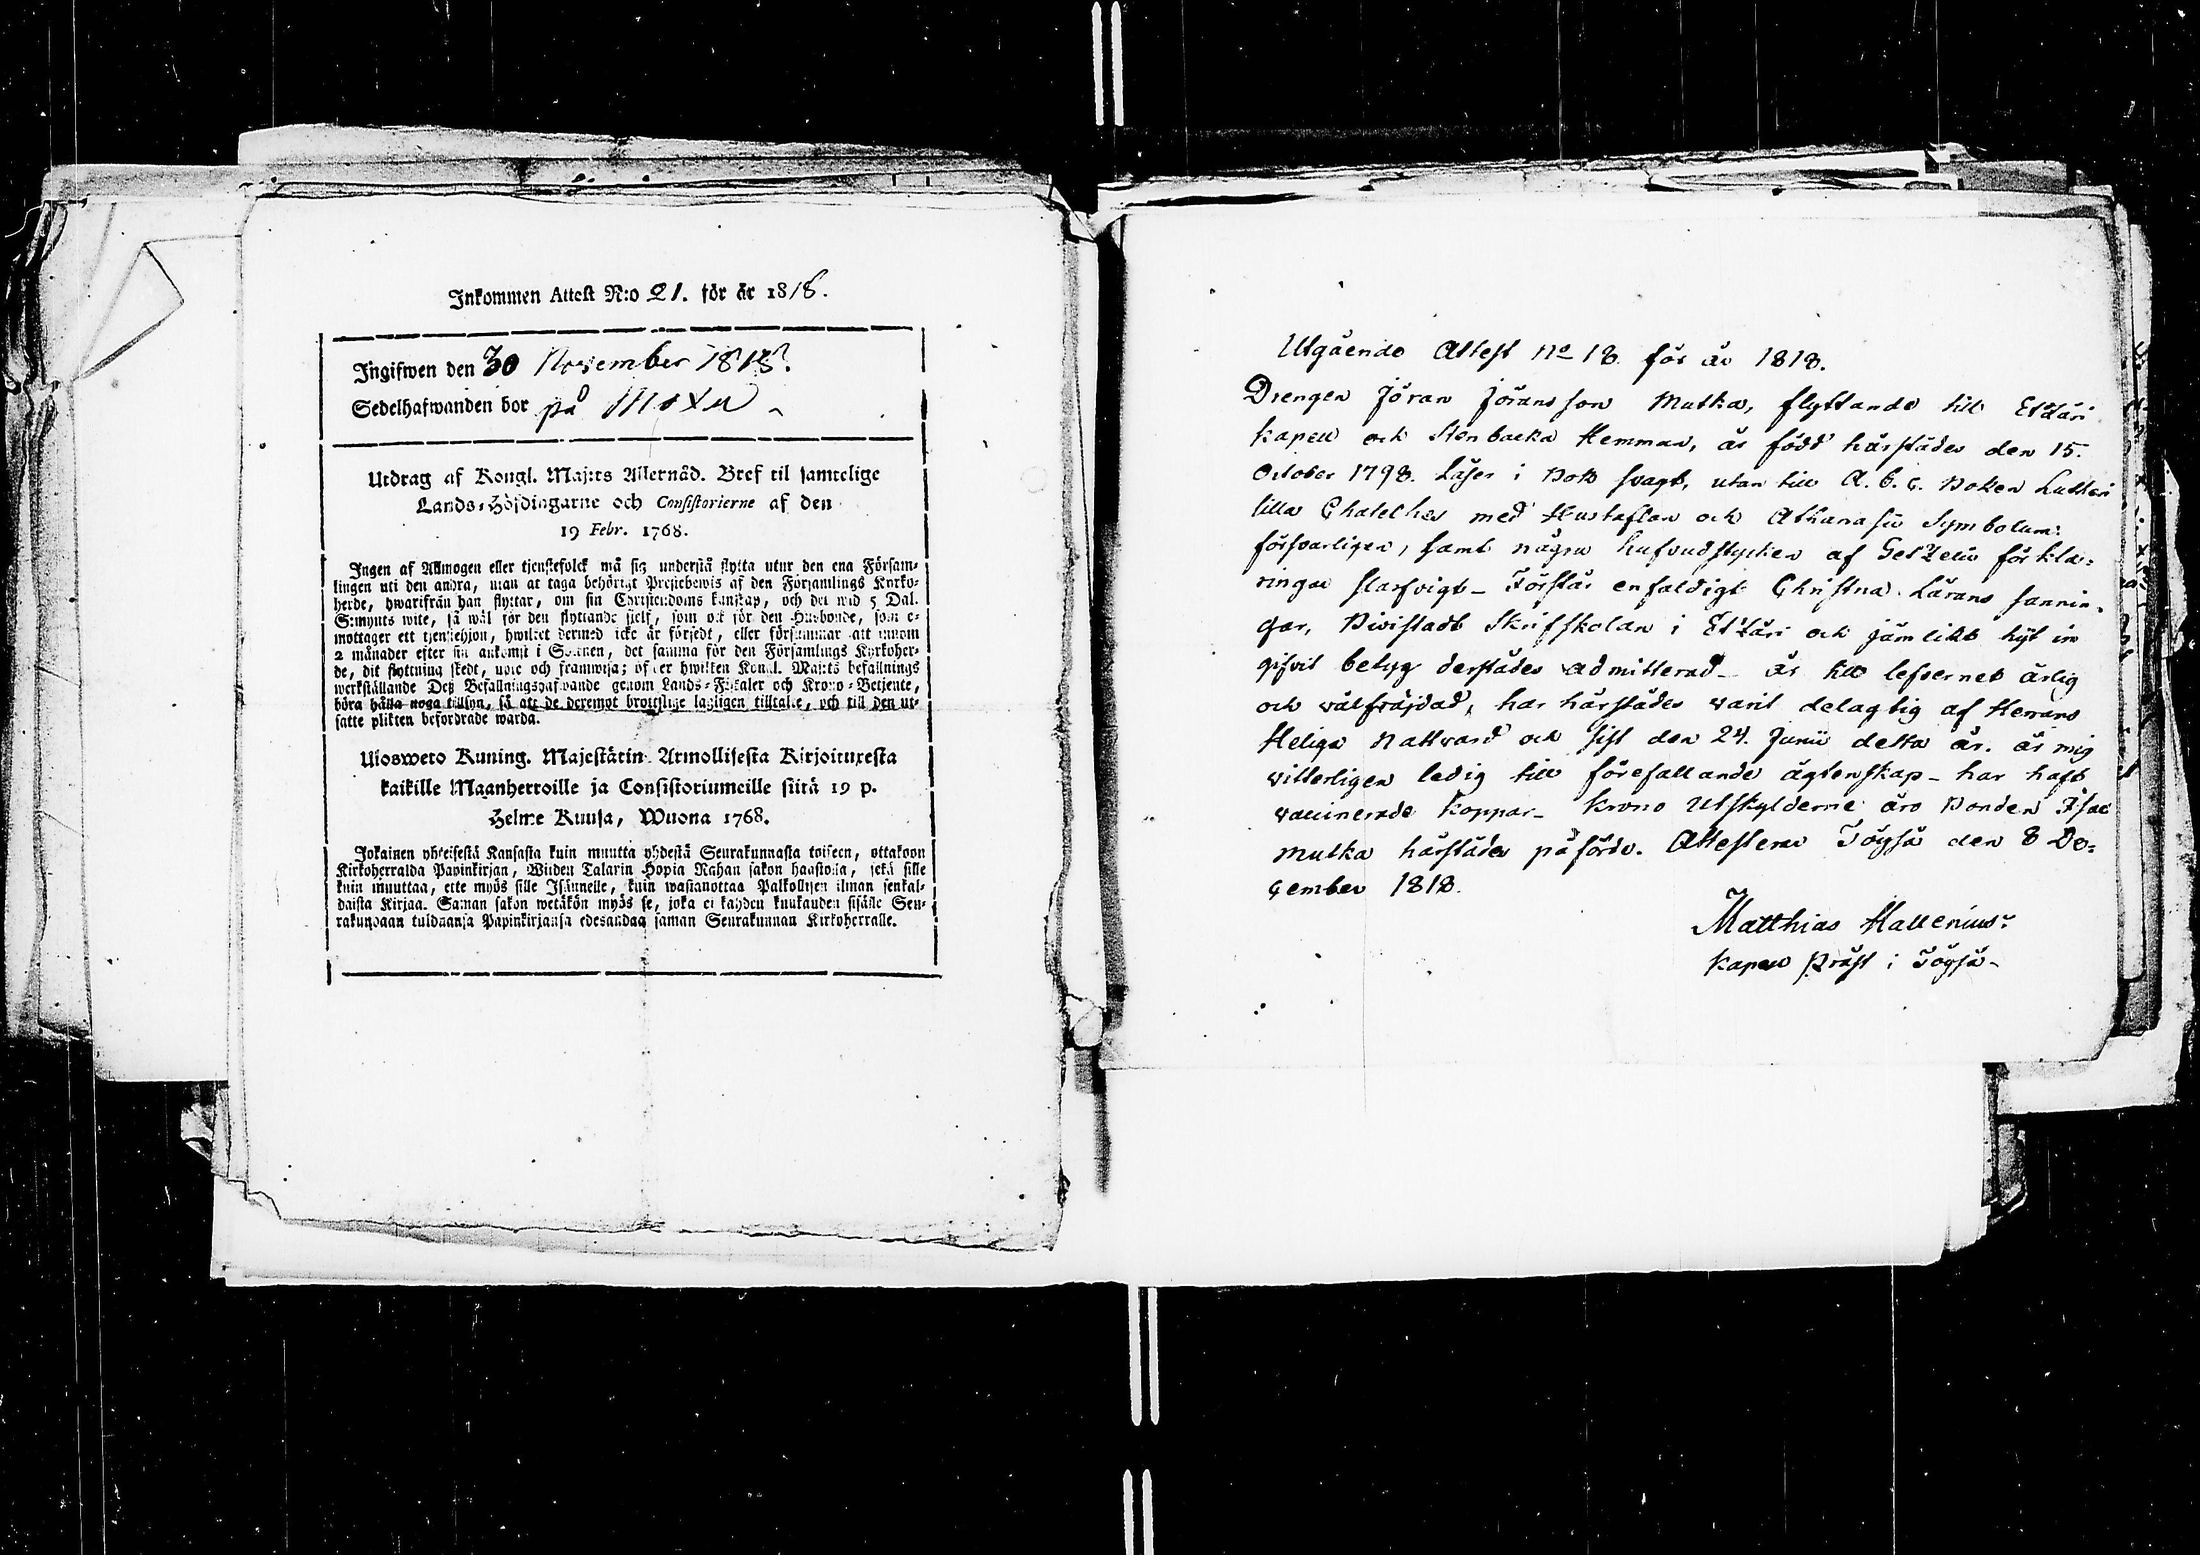 Inkommen Attest N:o 21. för år 1818.
Ingifwen den 30 November 1818.
Sedelhafwanden bor på
Utdrag af Kongl. Maj:ts Allernåd. Bref til samtelige
Lands-Höfdingarne och Consistorierne af den
19 Febr. 1768.
Ingen af Allmogen eller tjenstefolck må sig understå flytta utur den ena Försam-
lingen uti den andra, utan at taga behörigt Prestebewis af den Församlings Kyrko-
herde, hwarifrån han flyttar, om sin Christendoms kunskap, och det wid 5 Dal.
S:mynts wite, så wäl för den flyttande sielf, som ock för den Husbonde, som e-
mottager ett tjenstehjon, hwilket dermed icke är försedt, eller försummar att innom
2 månader efter sin ankomst i Socknen, det samma för den Församlings Kyrkoher-
de, dit flyttning skedt, upte och framwisa; öfwer hwilken Kongl. Maj:ts befallnings
werkställande Deß Befallningshafwande genom Lands-Fiskaler och Krono-Betjente,
böra hålla noga tillsyn, så att de deremot brottslige lagligen tilltalte, och till den ut-
satte plikten befordrade warda.
Ulosweto Kuning. Majestätin Armollisesta Kirjoituxesta
kaikille Maanherroille ja Consistoriumeille siitä 19 p.
Helme Kuusa, Wuona 1768.
Jokainen yhteisestä Kansasta kuin muutta yhdestä Seurakunnasta toiseen, ottakoon
Kirkoherralda Papinkirjan, Wiiden Talarin Hopia Rahan sakon haastolla, sekä sille
kuin muuttaa, ette myös sille Isännelle, kuin wastanottaa Palkollisen ilman senkal-
daista Kirjaa. Saman sakon wetäkön myös se, joka ei kahden kuukauden sisälle Seu-
rakundaan tulduansa Papinkirjansa edesandaa saman Seurakunnan Kirkoherralle.
Utgående Attest No 18 för år 1818.
Drengen Jöran Jöransson Mutka, flyttande till Etzäri
kapell och Stenbacka Hemman, är född härstädes den 15.
October 1798. Läser i Bok svagt, utan till A. b. c. Boken Lutheri
lilla Chateches med Hustaflan och Athanasii Symbolum:
försvarligen, samt några hufvudstycken af Getzelii förkla-
ringar slarfvigt - Förstår enfaldigt Christna Lärans sannin-
gar, Bivistadt Skrifskolan i Etzäri och jämlikt hyt in
gifvit betyg derstädes admitterad - är till lefvernet ärlig
och välfräjdad, har härstädes varit delagtig af Herrans
Heliga Nattvard och sist den 24. Junii detta år. är mig
vitterligen ledig till förefallande ägtenskap - har haft
vaccinerade koppor - Krono Utskylderne äro Bonden Isac
Mutka härstädes påförde. Attesterar Töysä den 8 De-
cember 1818.
Matthias Hallenius.
Kapell Präst i Töysä -